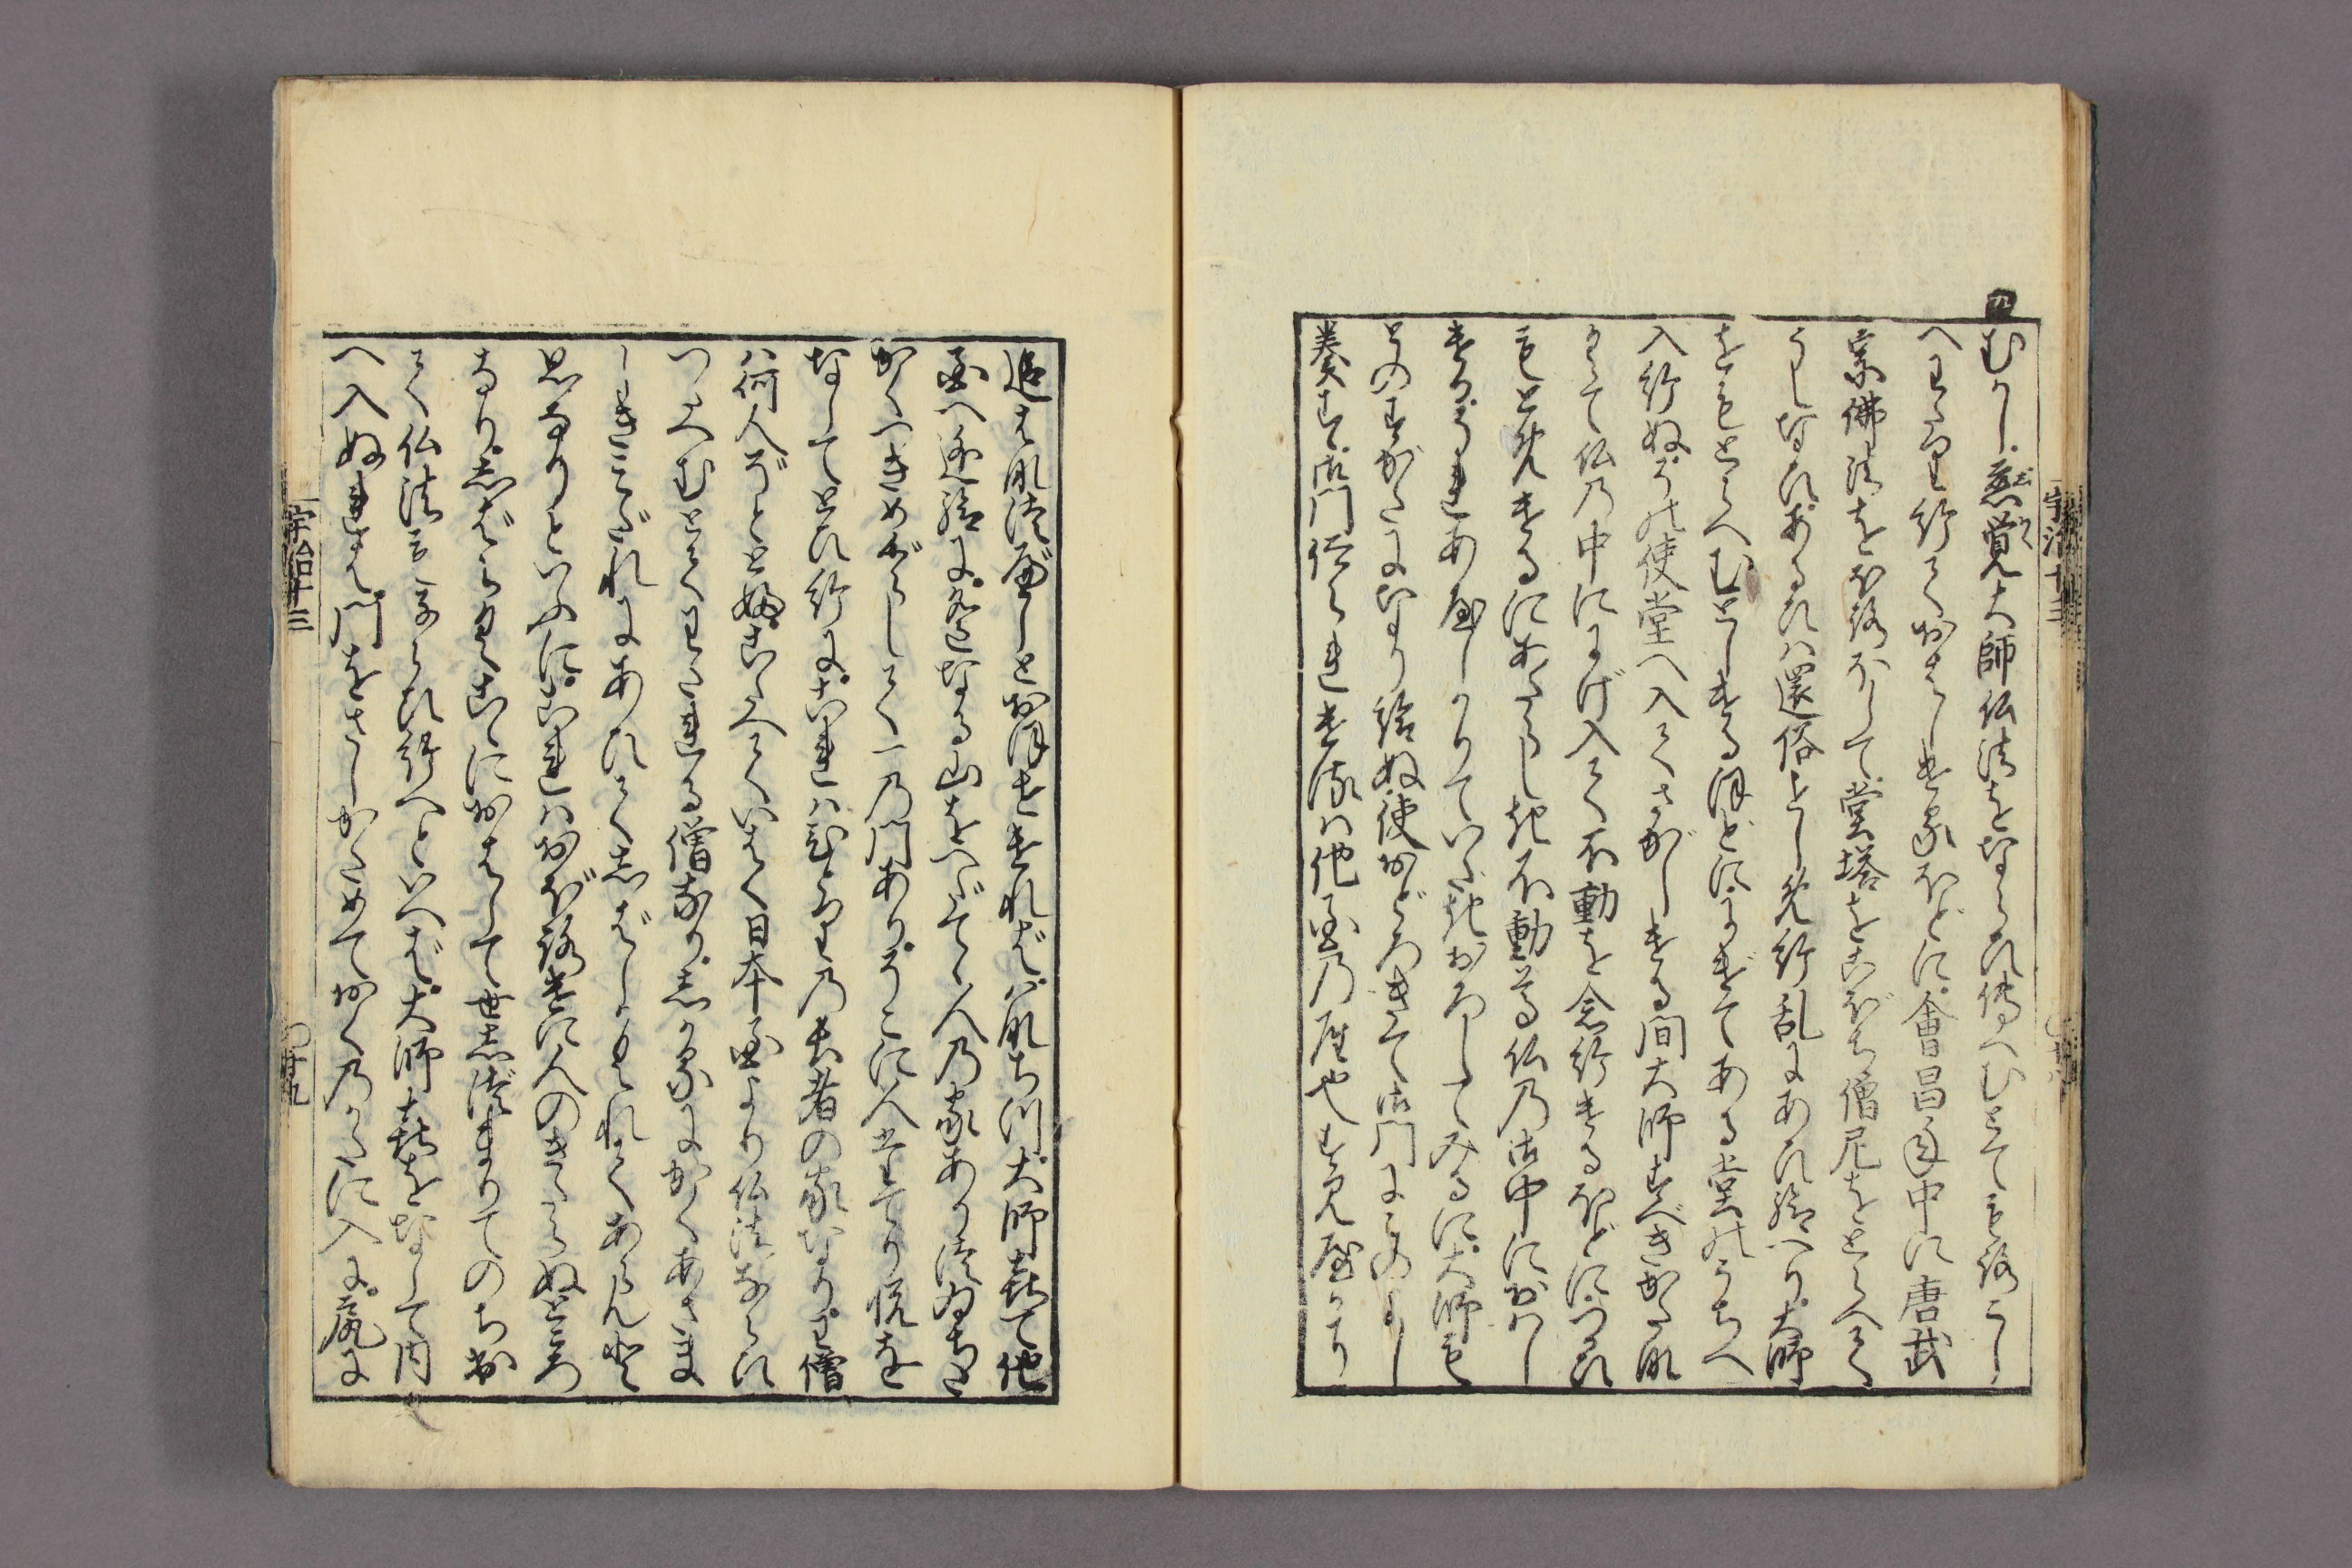 むかし慈覚大師仏法をならひ伝へむとてもろこし
へわたり給ておはしける程に會昌年中に唐武
宗佛法をほろぼして堂塔をこぼち僧尼をとらへて
うしなひあるひは還俗せしめ給乱にあひ給へり大師
をもとらへむとしけるほどににげてある堂のうちへ
入給ぬその使堂へ入てさがしける間大師すべきかたな
くて仏の中ににげ入て不動を念給けるほどにつかひ
もとめけるにあたらしき不動尊仏の御中におはし
けるそれあやしがりていだきおろしてみるに大師も
とのすがたになり給ぬ使おどろきて御門にこのよし
奏す御門仰られけるは他国の聖也すみやかに
追はなつべしとおほせければはなちつ大師喜て他
国へ逃給にはるかなる山をへだてゝ人の家あり築地
たかくつきめぐらして一の門ありそこに人たてり悦を
なしてとひ給にこれはひとりの長者の家なりわ僧
は何人ぞととふこたへていはく日本国より仏法ならひ
つたへむとてわたれる僧なりしかるにかくあさま
しきみだれにあひてしばしかくれてあらんと
思なりといふにこれはおぼろけに人のきたらぬところ
なりしばらくこゝにおはして世しづまりてのち出
て仏法もならひ給へといへば大師喜をなして内
へ入ぬれば門をさしかためておくのかたに入に尻に
宇治十三